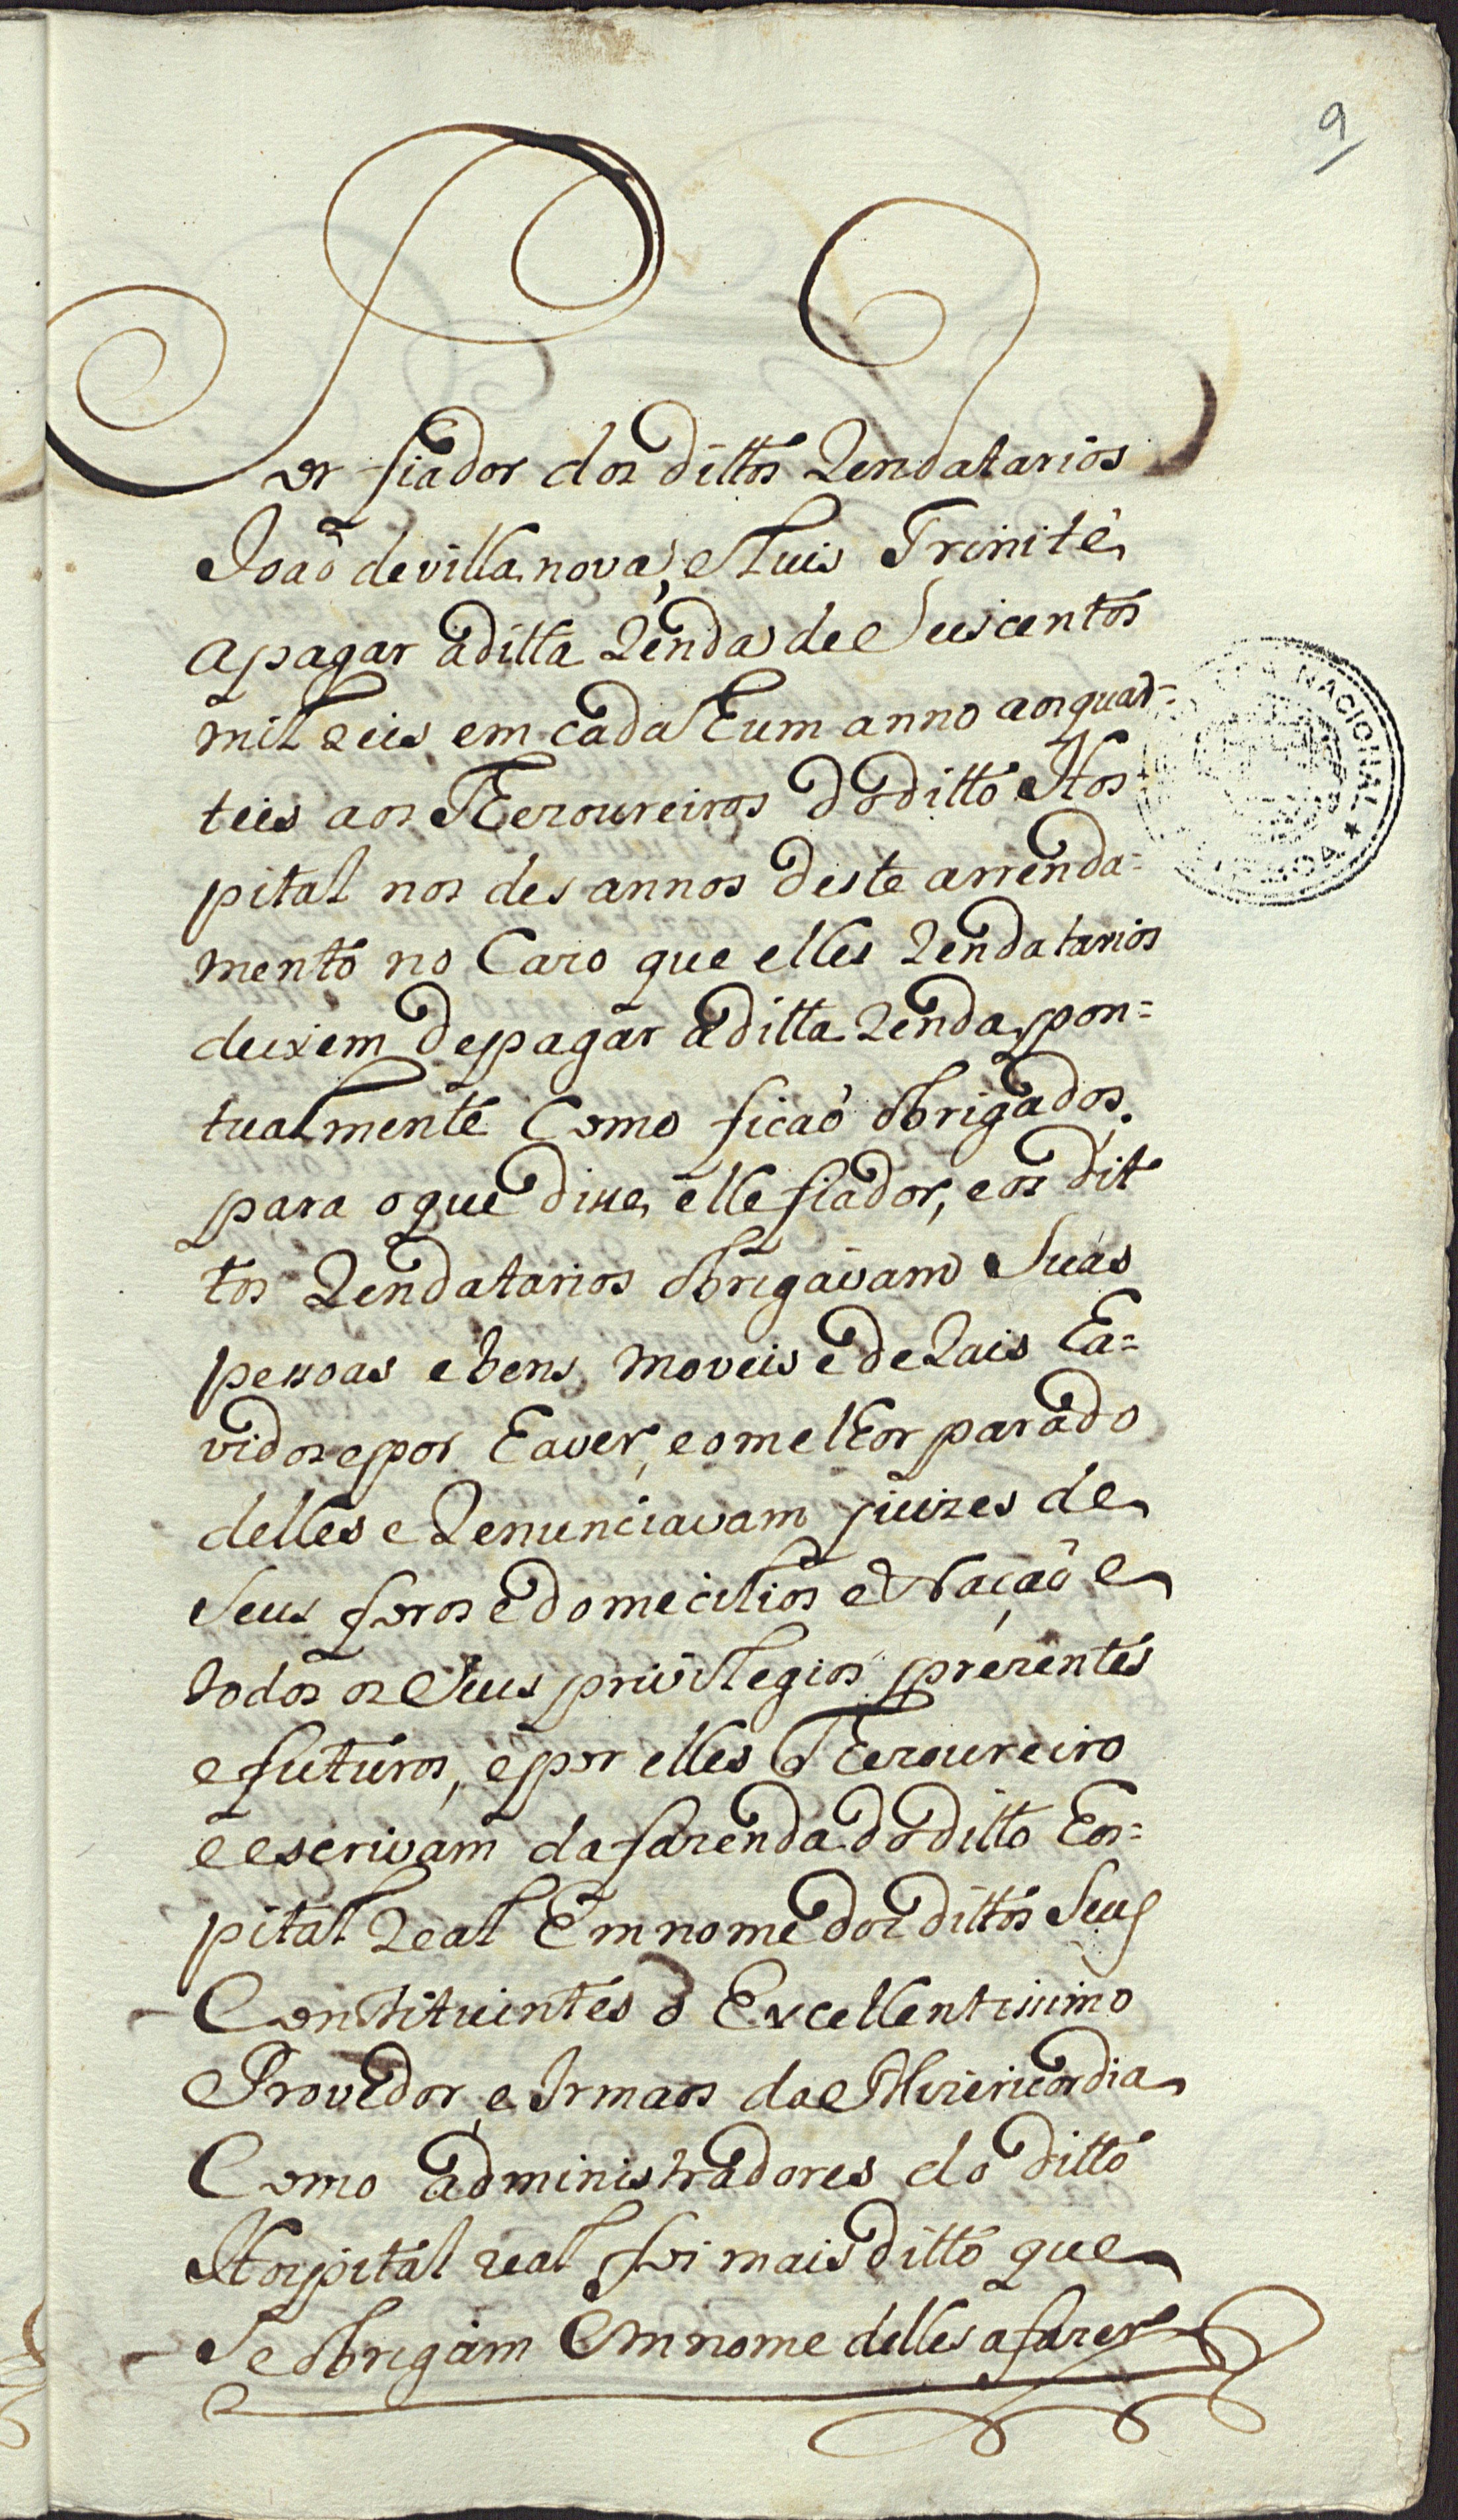 9
Por fiador dos dittos Rendatarios
João de villa nova, e Luis Trinité
a pagar a ditta Renda de Seiscentos
mil reis em cada hum anno aos quar-
teis aos Thezoureiros do ditto Hos
pital nos des annos deste arrenda-
mento no Cazo que elles Rendatarios
deixem de pagar a ditta Renda pon-
tualmente Como ficaõ obrigados,
para o que disse elle fiador, e os dit
tos Rendatarios obrigavam Suas
pessoas e bens moveis e de Rais ha-
vidos e por haver, e o melhor parado
delles e Renunciavam juizes de
Seus foros e domecilios e Nação e
todos os Seus privilegios prezentes
e futuros, e por elles Thezoureiro
e escrivam da fazenda do ditto hos-
pital Real Em nome dos dittos Seus
Constituintes o Excellentissimo
Provedor e Irmaos da Mizericordia
Como administradores do ditto
Hospital real foi mais ditto que
Se obrigam Em nome delles a fazer
NACIONAL ★ LISBOA